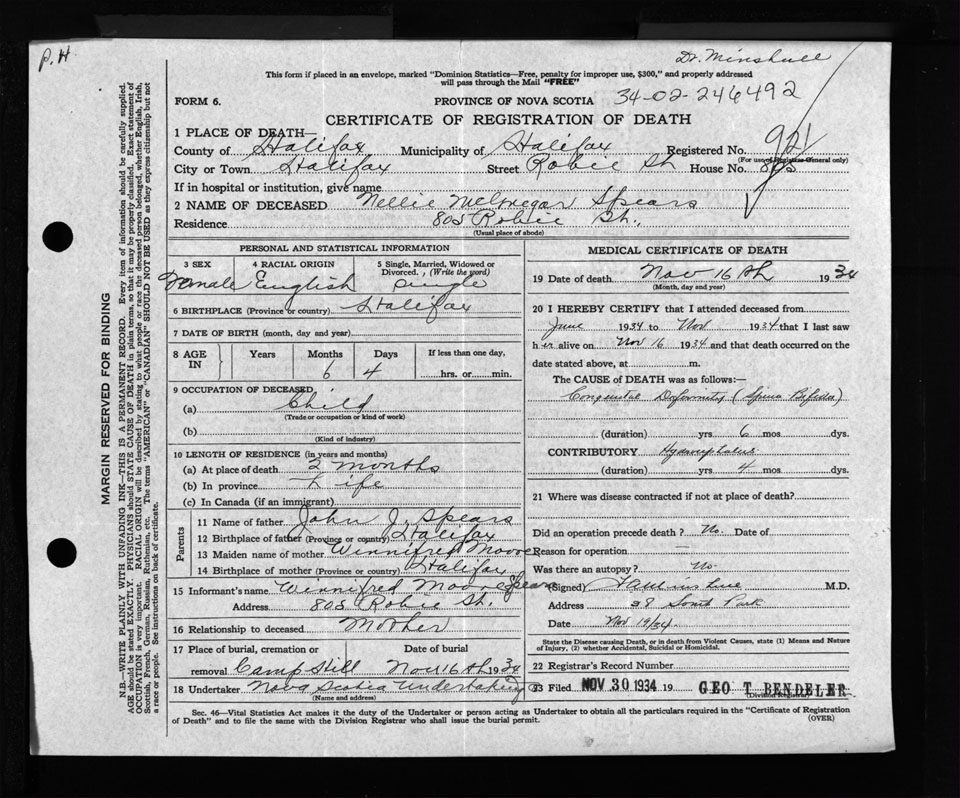 P. H
Dr. Minshull
This form if placed in an envelope, marked "Dominion Statistics—Free, penalty for improper use, $300," and properly addressed
will pass through the Mail "FREE"
FORM 6. PROVINCE OF NOVA SCOTIA 34-02-246492
CERTIFICATE OF REGISTRATION OF DEATH
1 PLACE OF DEATH—
County of Halifax Municipality of Halifax Registered No. 921
(For use of Registrar General only)
City or Town Halifax Street Robie St House No. 805
If in hospital or institution, give name
2 NAME OF DECEASED Nellie McGregar Spears
Residence 805 Robie St.
(Usual place of abode)
PERSONAL AND STATISTICAL INFORMATION
3 SEX 4 RACIAL ORIGIN 5 Single, Married, Widowed or
Divorced. , (Write the word)
Female English Single
6 BIRTHPLACE (Province or country) Halifax
7 DATE OF BIRTH (month, day and year)
8 AGE IN Years Months Days If less than one day,
6 4 hrs. or min.
9 OCCUPATION OF DECEASED
(a) Child
(Trade or occupation or kind of work)
(b)
(Kind of industry)
10 LENGTH OF RESIDENCE (in years and months)
(a) At place of death 2 months
(b) In province Life
(c) In Canada (if an immigrant)
Parents
11 Name of father John J. Spears
12 Birthplace of father (Province or country) Halifax
13 Maiden name of mother Winnifred Moore
14 Birthplace of mother (Province or country) Halifax
15 Informant's name Winnifred Moore Spears
Address 805 Robie St.
16 Relationship to deceased Mother
17 Place of burial, cremation or Date of burial
removal Camp Hill Nov 16th 1934
18 Undertaker Nova Scotia Undertaking Co
(Name and address)
MEDICAL CERTIFICATE OF DEATH
19 Date of death Nov 16th 1934
(Month, day and year)
20 I HEREBY CERTIFY that I attended deceased from
June 1934 to Nov 1934 that I last saw
her alive on Nov 16 1934 and that death occurred on the
date stated above, at m.
The CAUSE OF DEATH was as follows:—
Congenital Deformity (Spina Bifida)
(duration) yrs 6 mos dys.
CONTRIBUTORY Hydrocephalus
(duration) yrs. 4 mos. dys.
21 Where was disease contracted if not at place of death?
Did an operation precede death? No. Date of
Reason for operation —
Was there an autopsy? No.
(Signed) Minshull M.D.
Address 28 South Park
Date Nov 19/34
State the Disease causing Death, or in death from Violent Causes, state (1) Means and Nature
of Injury, (2) whether Accidental, Suicidal or Homicidal.
22 Registrar's Record Number
23 Filed NOV 30 1934 19 GEO T. BENDELER
(Division Registrar)
Sec. 46—Vital Statistics Act makes it the duty of the Undertaker or person acting as Undertaker to obtain all the particulars required in the "Certificate of Registration
of Death" and to file the same with the Division Registrar who shall issue the burial permit. (OVER)
MARGIN RESERVED FOR BINDING
N.B.—WRITE PLAINLY WITH UNFADING INK—THIS IS A PERMANENT RECORD. Every item of information should be carefully supplied.
AGE should be stated EXACTLY. PHYSICIANS should STATE CAUSE OF DEATH in plain terms, so that it may be properly classified. Exact statement of
OCCUPATION is very important. RACIAL ORIGIN will be described by stating to what people or race the deceased person belonged, whether English, Irish,
Scottish, French, German, Russian, Ruthenian, etc. The terms "AMERICAN" or "CANADIAN" SHOULD NOT BE USED as they express citizenship but not
a race or people. See instructions on back of certificate.